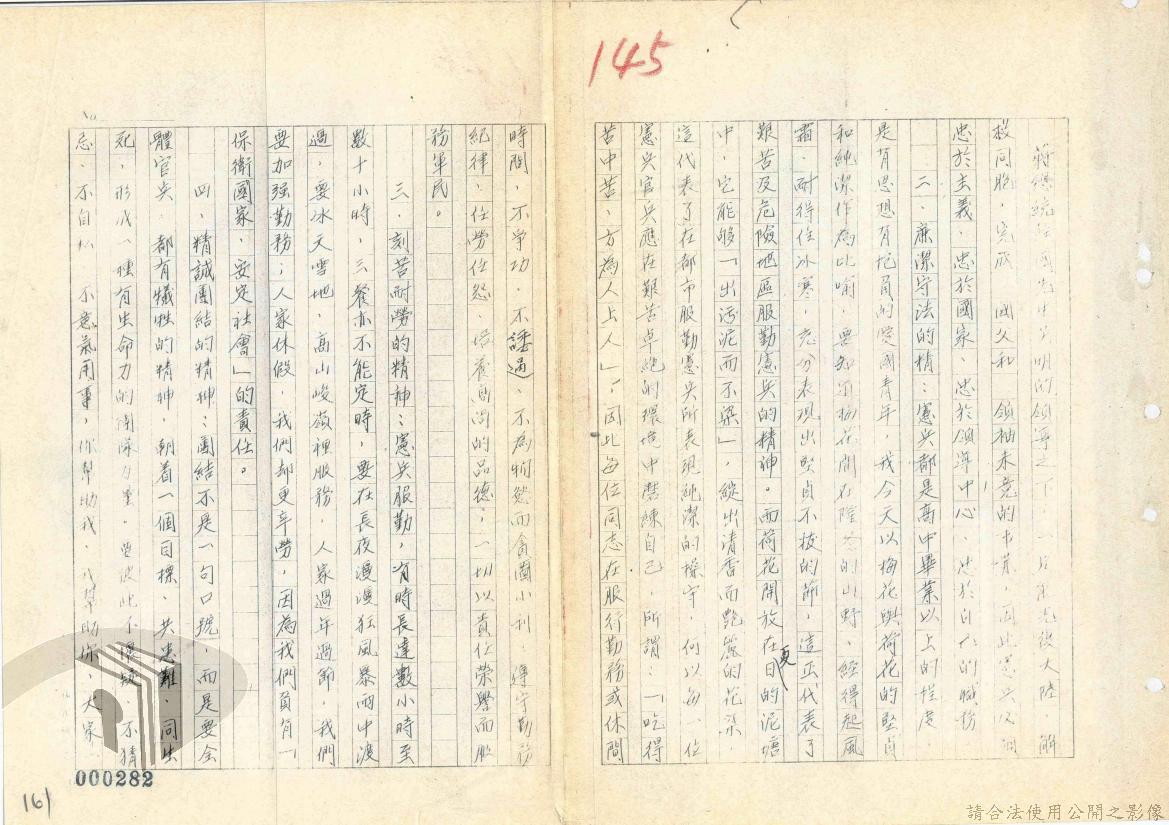 145
蔣總統經國先生英明的領導之下,一致完光復大陸,解
救同胞,完成 國父和 領袖未竟的事業,因此憲兵必須
忠於主義、忠於國家、忠於領導中心、忠於自己的職務
二、廉潔守法的精:憲兵都是高中畢業以上的程度,
是有思想有抱負的愛國青年,我今天以梅花與荷花的堅貞
和純潔作為比喻,要知道梅花開在隆冬的山野、經得起風
霜、耐得住冰寒,充份表現出堅貞不拔的節,這正代表了
艱苦及危險地區服勤憲兵的精神。而荷花開放在夏日的泥塘
中,它能夠「出污泥而不染」,綻出清香而艷麗的花朵,
這代表了在都市服勤憲兵所表現純潔的操守,何以每一位
憲兵官兵應在艱苦卓絕的環境中磨練自己,所謂:「吃得
苦中苦、方為人上人」,因此每位同志在服行勤務或休閒
時間,不爭功、不諉過、不為物慾而貪圖小利,遵守勤務
紀律,任勞任怨、培養高尚的品德,一切以責任榮譽而服
務軍民。
三、刻苦耐勞的精神:憲兵服勤,有時長達數小時至
數十小時,三餐亦不能定時,要在長夜漫漫狂風暴雨中渡
過,要冰天雪地,高山峻嶺裡服務,人家過年過節,我們
要加強勤務;人家休假,我們卻更辛勞,因為我們負有「
保衛國家,安定社會」的責任。
四,精誠團結的精神:團結不是一句口號,而是要全
體官兵,都有犧牲的精神,朝着一個目標、共患難、同生
死,形成一種有生命力的團隊力量。要彼此不懷疑、不猜
忌、不自私、不意氣用事,你幫助我、我幫助你,大家
000282
161
請合法使用公開之影像